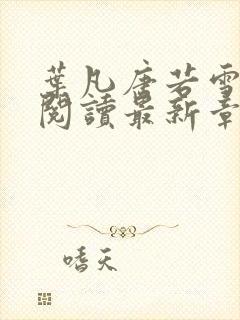 葉凡唐若雪
閱讀最新章
嗜天